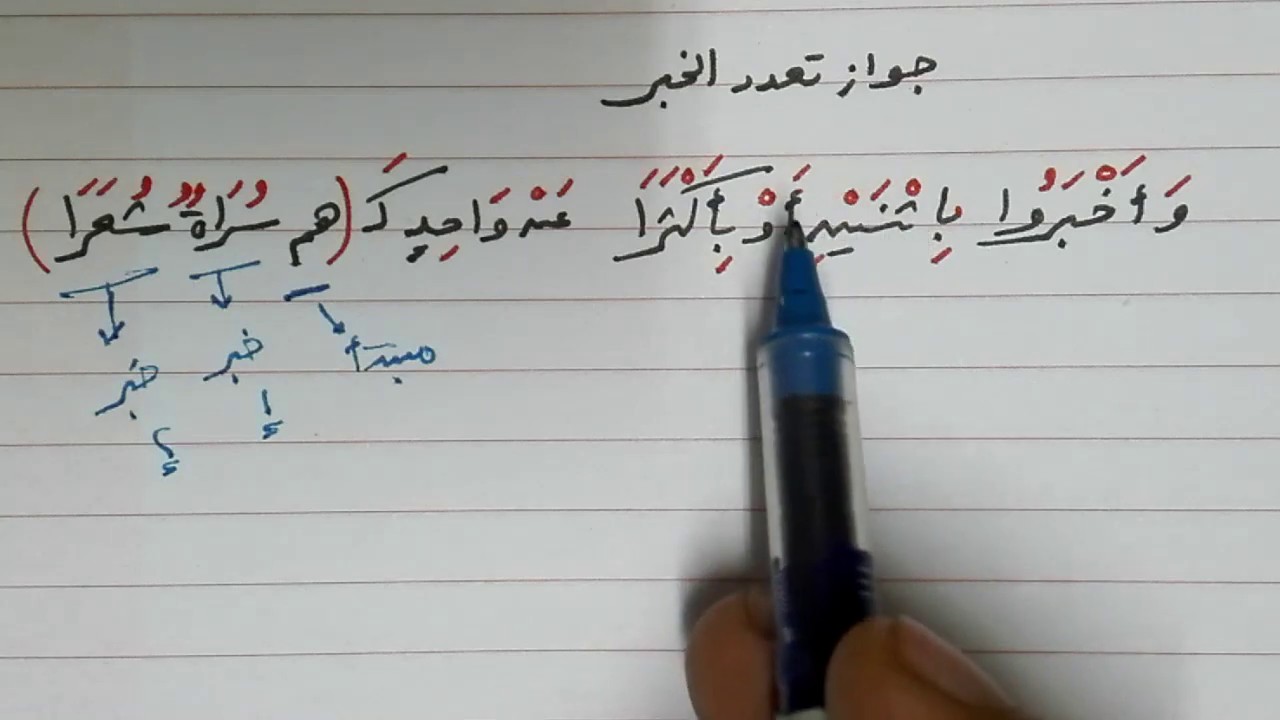 جواز تعدد الخبر
وَأَخْبَرُوا بِاثْنَيْنِ أَوْ بِأَكْثَرَا عَنْ وَاحِدٍ كَ (هم سُرَاةٌ شُعَرَا)
مبتدأ خبر خبر
إ